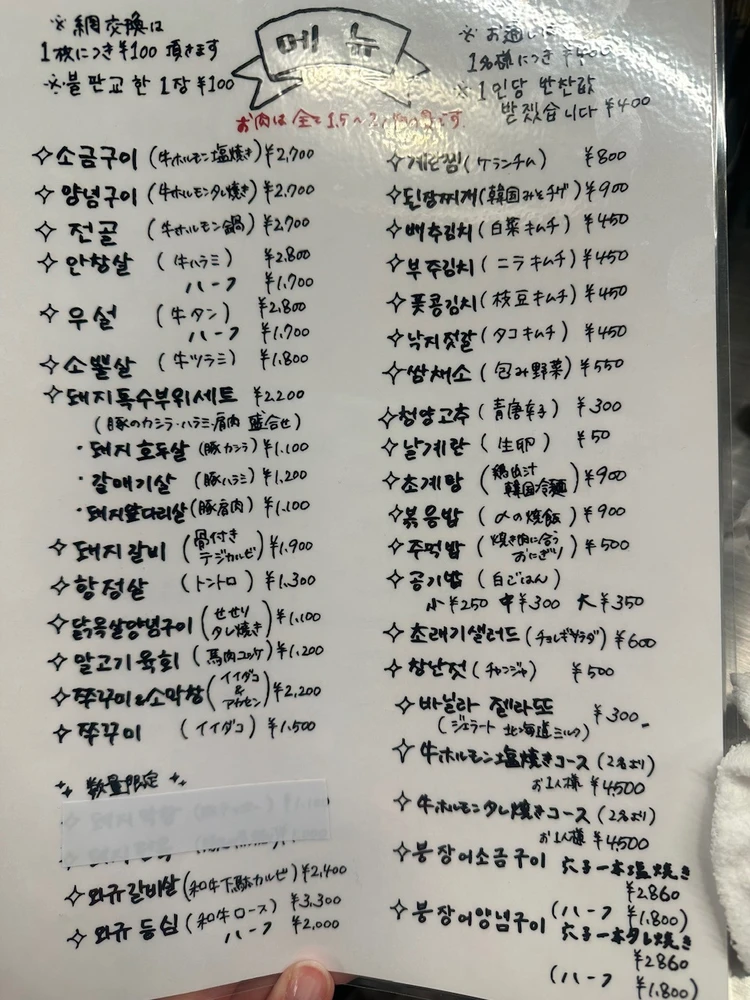 ※網交換は
1枚につき¥100 頂きます
※불판교한 1장 ¥100
메뉴
※お通しは
1名様につき ¥400
※1인당 반찬값
받겠습니다 ¥400
お肉は全て1.5〜2人前の量です
✧소금구이 (牛ホルモン塩焼き) ¥2,700
✧양념구이 (牛ホルモンタレ焼き) ¥2,700
✧전골 (牛ホルモン鍋) ¥2,700
✧안창살 (牛ハラミ) ¥2,800
ハーフ ¥1,700
✧우설 (牛タン) ¥2,800
ハーフ ¥1,700
✧소뽈살 (牛ツラミ) ¥1,800
✧돼지특수부위세트 ¥2,200
(豚のカシラ・ハラミ・肩肉 盛合せ)
・돼지 호두살 (豚カシラ) ¥1,100
・갈매기살 (豚ハラミ) ¥1,200
・돼지앞다리살 (豚肩肉) ¥1,100
✧돼지갈비 (骨付きテジカルビ) ¥1,900
✧항정살 (トントロ) ¥1,300
✧닭목살양념구이 (せせりタレ焼き) ¥1,100
✧말고기육회 (馬肉ユッケ) ¥1,200
✧쭈꾸미&소막창 (イイダコ&アカセン) ¥2,200
✧쭈꾸미 (イイダコ) ¥1,500
数量限定
✧와규갈비살 (和牛下駄カルビ) ¥2,400
✧와규 등심 (和牛ロース) ¥3,300
ハーフ ¥2,000
✧계란찜 (ケランチム) ¥800
✧된장찌개 (韓国みそチゲ) ¥900
✧배추김치 (白菜キムチ) ¥450
✧부추김치 (ニラキムチ) ¥450
✧풋콩김치 (枝豆キムチ) ¥450
✧낙지젓갈 (タコキムチ) ¥450
✧쌈채소 (包み野菜) ¥550
✧청양고추 (青唐辛子) ¥300
✧날계란 (生卵) ¥50
✧초계망 (鶏出汁韓国冷麺) ¥900
✧볶음밥 (〆の焼飯) ¥900
✧주먹밥 (焼き肉に合うおにぎり) ¥500
✧공기밥 (白ごはん)
小¥250 中¥300 大¥350
✧초래기샐러드 (チョレギサラダ) ¥600
✧창난젓 (チャンジャ) ¥500
✧바닐라 젤라또 ¥300-
(ジェラート 北海道ミルク)
✧牛ホルモン塩焼きコース (2名より)
お1人様 ¥4500
✧牛ホルモンタレ焼きコース (2名より)
お1人様 ¥4500
✧붕장어소금구이 穴子一本塩焼き
¥2860
(ハーフ ¥1,800)
✧붕장어양념구이 穴子一本タレ焼き
¥2860
(ハーフ ¥1,800)